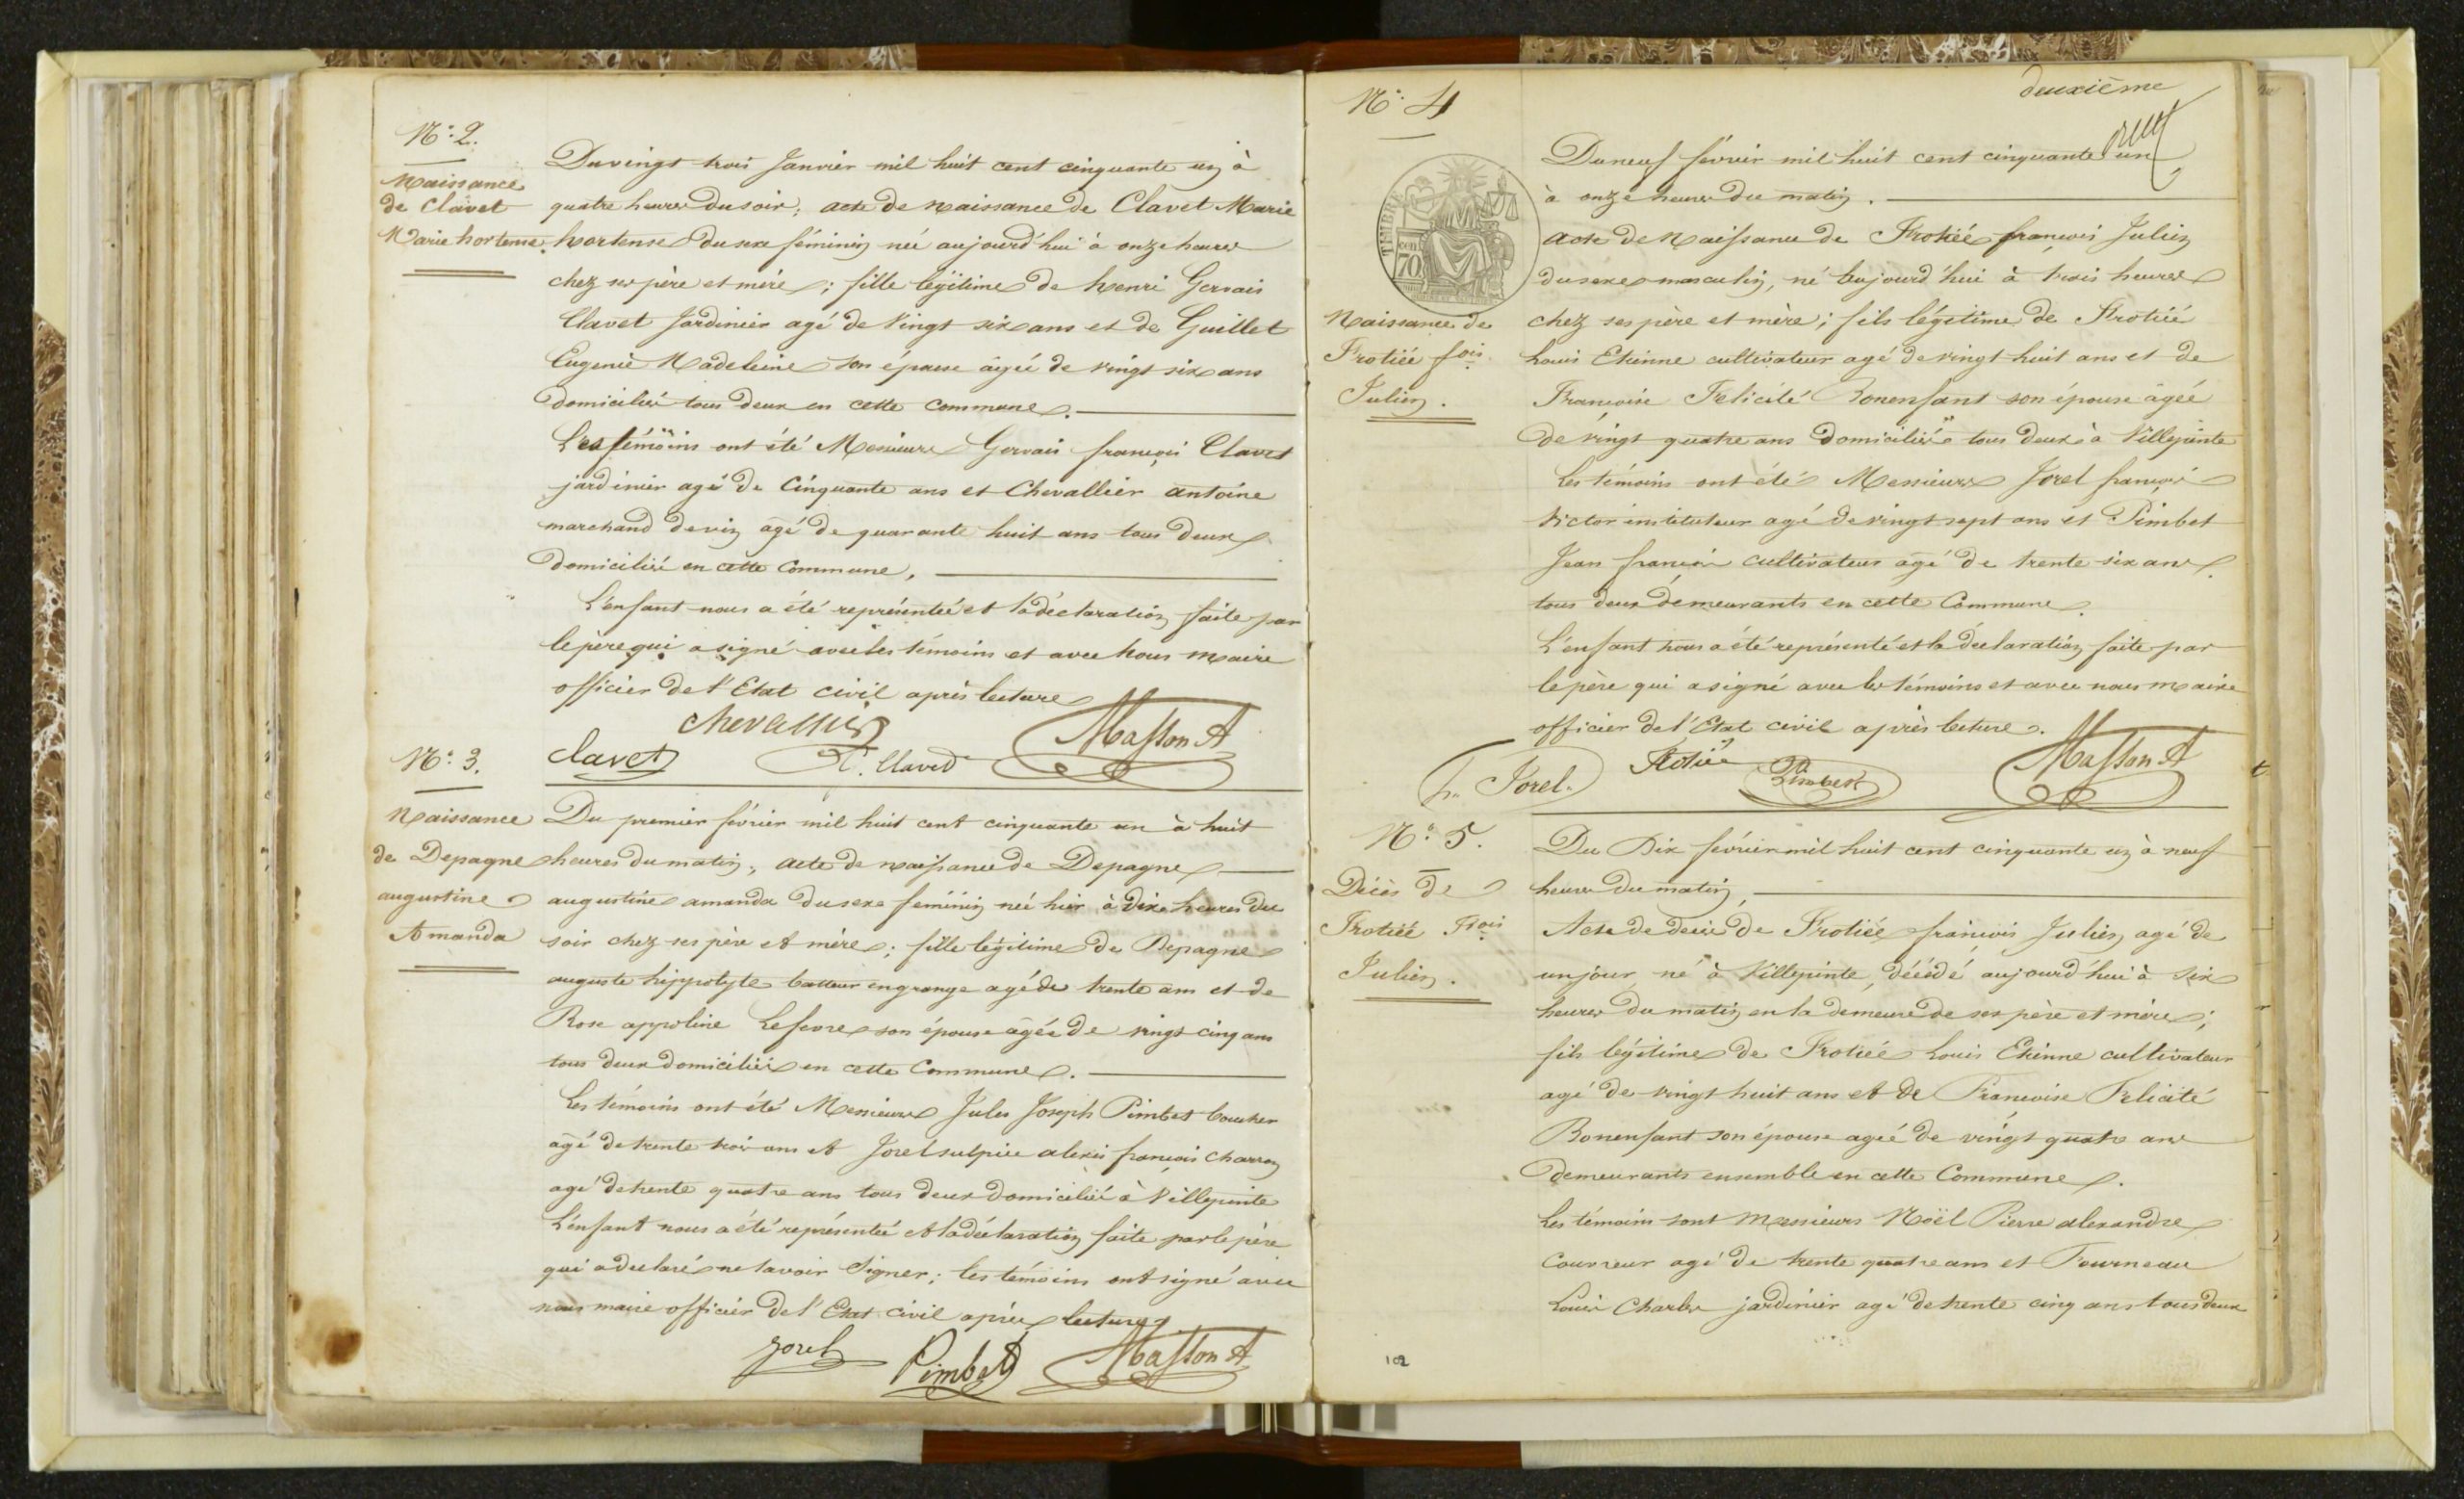 N°: 2.
Naissance
de Clavet
Marie hortense.
Du vingt trois Janvier mil huit cent cinquante un à
quatre heures du soir; acte de naissance de Clavet Marie
hortense du sexe féminin née aujourd'hui à onze heures
chez ses père et mère; fille légitime de henri Gervais
Clavet Jardinier agé de vingt six ans et de Guillet
Eugenie Madeleine son épouse âgée de vingt six ans
domiciliés tous deux en cette commune.
Les témoins ont été Messieurs Gervais françois Clavet
jardinier agé de Cinquante ans et Chevallier antoine
marchand de vin âgé de quarante huit ans tous deux
domiciliés en cette Commune,
L'enfant nous a été représentée et la déclaration faite par
le père qui a signé avec les témoins et avec nous maire
officier de l'Etat civil après lecture
Chevallier
Clavet
Clavet
Masson A
N°: 3.
Naissance
de Depagne
augustine
Amanda
Du premier février mil huit cent cinquante un à huit
heures du matin; acte de naissance de Depagne
augustine amanda du sexe féminin née hier à dix heures du
soir chez ses père et mère; fille légitime de Depagne
auguste hippolyte batteur en grange agé de trente ans et de
Rose appoline Lefevre son épouse âgée de vingt cinq ans
tous deux domiciliés en cette Commune.
Les témoins ont été Messieurs Jules Joseph Pimbet boucher
âgé de trente trois ans et Jorel sulpice alexis françois charron
agé de trente quatre ans tous deux domiciliés à Villepinte
L'enfant nous a été représentée et la déclaration faite par le père
qui a declaré ne savoir signer; les témoins ont signé avec
nous maire officier de l'Etat civil après lecture
Jorel
Pimbet
Masson A
deuxième
N°: 4
TIMBRE
70
Naissance de
Frotiée fois
Julien.
Du neuf février mil huit cent cinquante un
à onze heures du matin.
acte de Naissance de Frotiée françois Julien
du sexe masculin, né aujourd'hui à trois heures
chez ses père et mère; fils légitime de Frotiée
Louis Etienne cultivateur agé de vingt huit ans et de
Françoise Felicité Bonenfant son épouse âgée
de vingt quatre ans domiciliés tous deux à Villepinte
Les témoins ont été Messieurs Jorel françois
Victor instituteur agé de vingt sept ans et Pimbet
Jean françois cultivateur agé de trente six ans
tous deux demeurants en cette Commune.
L'enfant nous a été représenté et la déclaration faite par
le père qui a signé avec les témoins et avec nous maire
officier de l'Etat civil après lecture.
Jorel.
Frotiée
Pimbet
Masson A
N°: 5.
Décès de
Frotiée Fois
Julien.
Du Dix février mil huit cent cinquante un à neuf
heures du matin,
Acte de décès de Frotiée françois Julien agé de
un jour, né à Villepinte, décédé aujourd'hui à six
heures du matin en la demeure de ses père et mère;
fils légitime de Frotiée Louis Etienne cultivateur
agé de vingt huit ans et de Françoise Felicité
Bonenfant son épouse agée de vingt quatre ans
demeurants ensemble en cette Commune.
Les témoins sont Messieurs Noël Pierre alexandre
Couvreur agé de trente quatre ans et Fourneau
Louis Charles jardinier agé de trente cinq ans tous deux
102